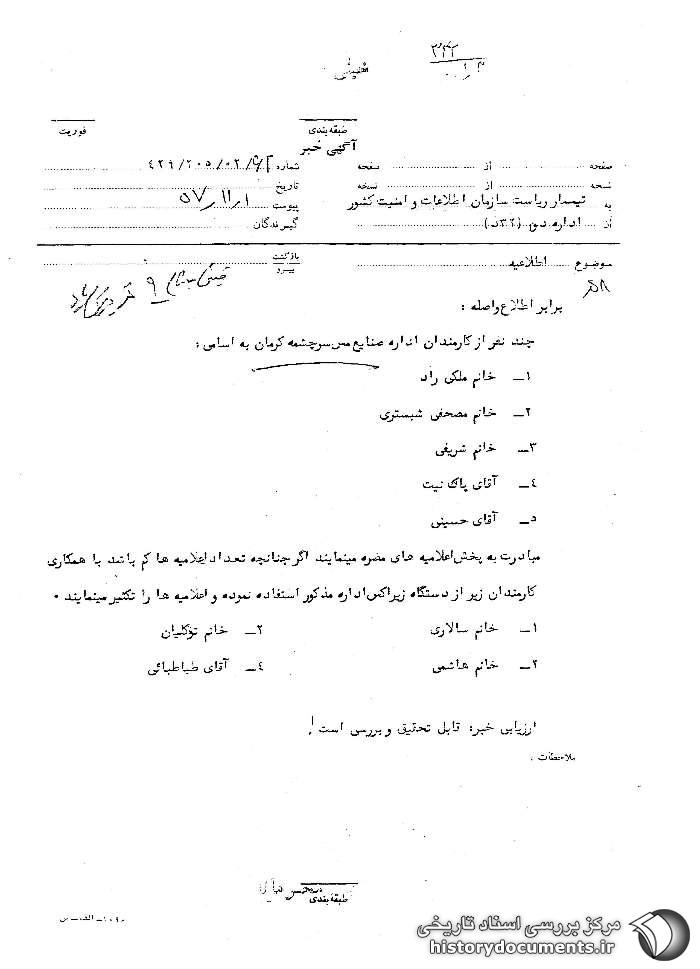 ۳۴۳
طبقه‌بندی
فوریت
آگهی خبر
صفحه از صفحه
شماره ۴۲۹/۲۰۵/۰۲/
نسخه از نسخه
تاریخ ۵۷/۱۱/۱
به تیمسار ریاست سازمان اطلاعات و امنیت کشور
پیوست
از اداره دوم (۳۲د)
گیرندگان
موضوع اطلاعیه
بازگشت
پیرو
برابر اطلاع واصله :
چند نفر از کارمندان اداره صنایع مس سرچشمه کرمان به اسامی :
۱ـ خانم ملکی راد
۲ـ خانم مصحفی شبستری
۳ـ خانم شریفی
۴ـ آقای پاک نیت
۵ـ آقای حسینی
مبادرت به پخش اعلامیه های مضره مینمایند اگر چنانچه تعداد اعلامیه ها کم باشد با همکاری
کارمندان زیر از دستگاه زیراکس اداره مذکور استفاده نموده و اعلامیه ها را تکثیر مینمایند .
۱ـ خانم سالاری ۲ـ خانم توکلیان
۲ـ خانم هاشمی ۴ـ آقای طباطبائی
ارزیابی خبر: قابل تحقیق و بررسی است !
ملاحظات .
طبقه‌بندی
مرکز بررسی اسناد تاریخی
historydocuments.ir